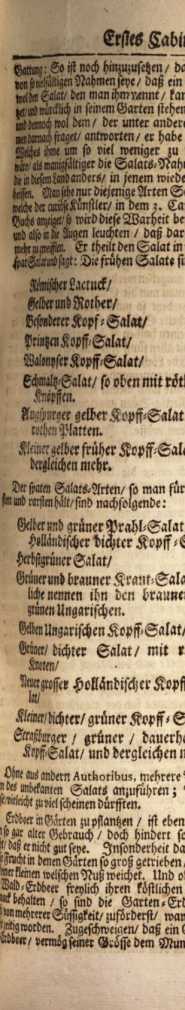 Erstes Cabi
Gattung: So ist noch hinzuzusetzen / da
von so vielfältigen Nahmen seye / daß ein
wol den Salat / den man ihm nennet / kan
get / und würcklich in seinem Garten stehen
und dennoch wol dem / der unter andere
men darnach fraget / antworten / er habe
Welches ihme um so viel weniger zu
wär / als manigfältiger die Salats-Nahm
die in diesem Land anders / in jenem wiede
heissen. Man sehe nur diejenige Arten S
welche der curiöse Künstler / in dem 2. Ca
Buchs anzieget / so wird diese Warheit be
und also in die Augen leuchten / daß dar
mehr zu zweiffen. Er theilt den Salat in
spat Salat und sagt: Die frühen Salats si
Römischer Lactuck /
Gelber und Rother /
Besonderer Kopf-Salat /
Printzen Kopff-Salat /
Walonyser Kopff-Salat /
Schmaltz-Salat / so oben mit röth
Knöpffen.
Augspurger gelber Kopff-Salat
rothen Platten.
Kleiner gelber früher Kopff-Sala
dergleichen mehr.
Der spaten Salats-Arten / so man für
sten und rarsten hält / sind nachfolgende:
Gelber und grüner Prahl-Salat
Holländischer dichter Kopff-S
Herbstgrüner Salat /
Grüner und brauner Kraut-Sala
liche nennen ihn den braune
grünen Ungarischen.
Gelben Ungarischen Kopff-Salat /
Grüner / dichter Salat / mit r
Knoten /
Neuer grosser Holländischer Kopf
lat /
Kleiner / dichter / grüner Kopff-S
Straßburger / grüner / dauerh
Kopf-Salat / und dergleichen m
Ohne aus andern Authoribus, mehrere
des unbekanten Salats anzuführen;
vielleicht zu viel scheinen dürfften.
Erdbeer in Gärten zu pflantzen / ist eben
so gar alter Gebrauch / doch hindert so
daß er nicht gut seye. Insonderheit da
Frucht in denen Gärten so groß getrieben /
einer kleinen welschen Nuß weichet. Und ob
Wald-Erdbeer freylich ihren köstlichen
behalten / so sind die Garten-Erd
von mehrerer Süssigkeit / zuförderst / wan
zeitig worden. Zugeschweigen / daß ein G
Erdbeer / vermög seiner Grösse dem Mun